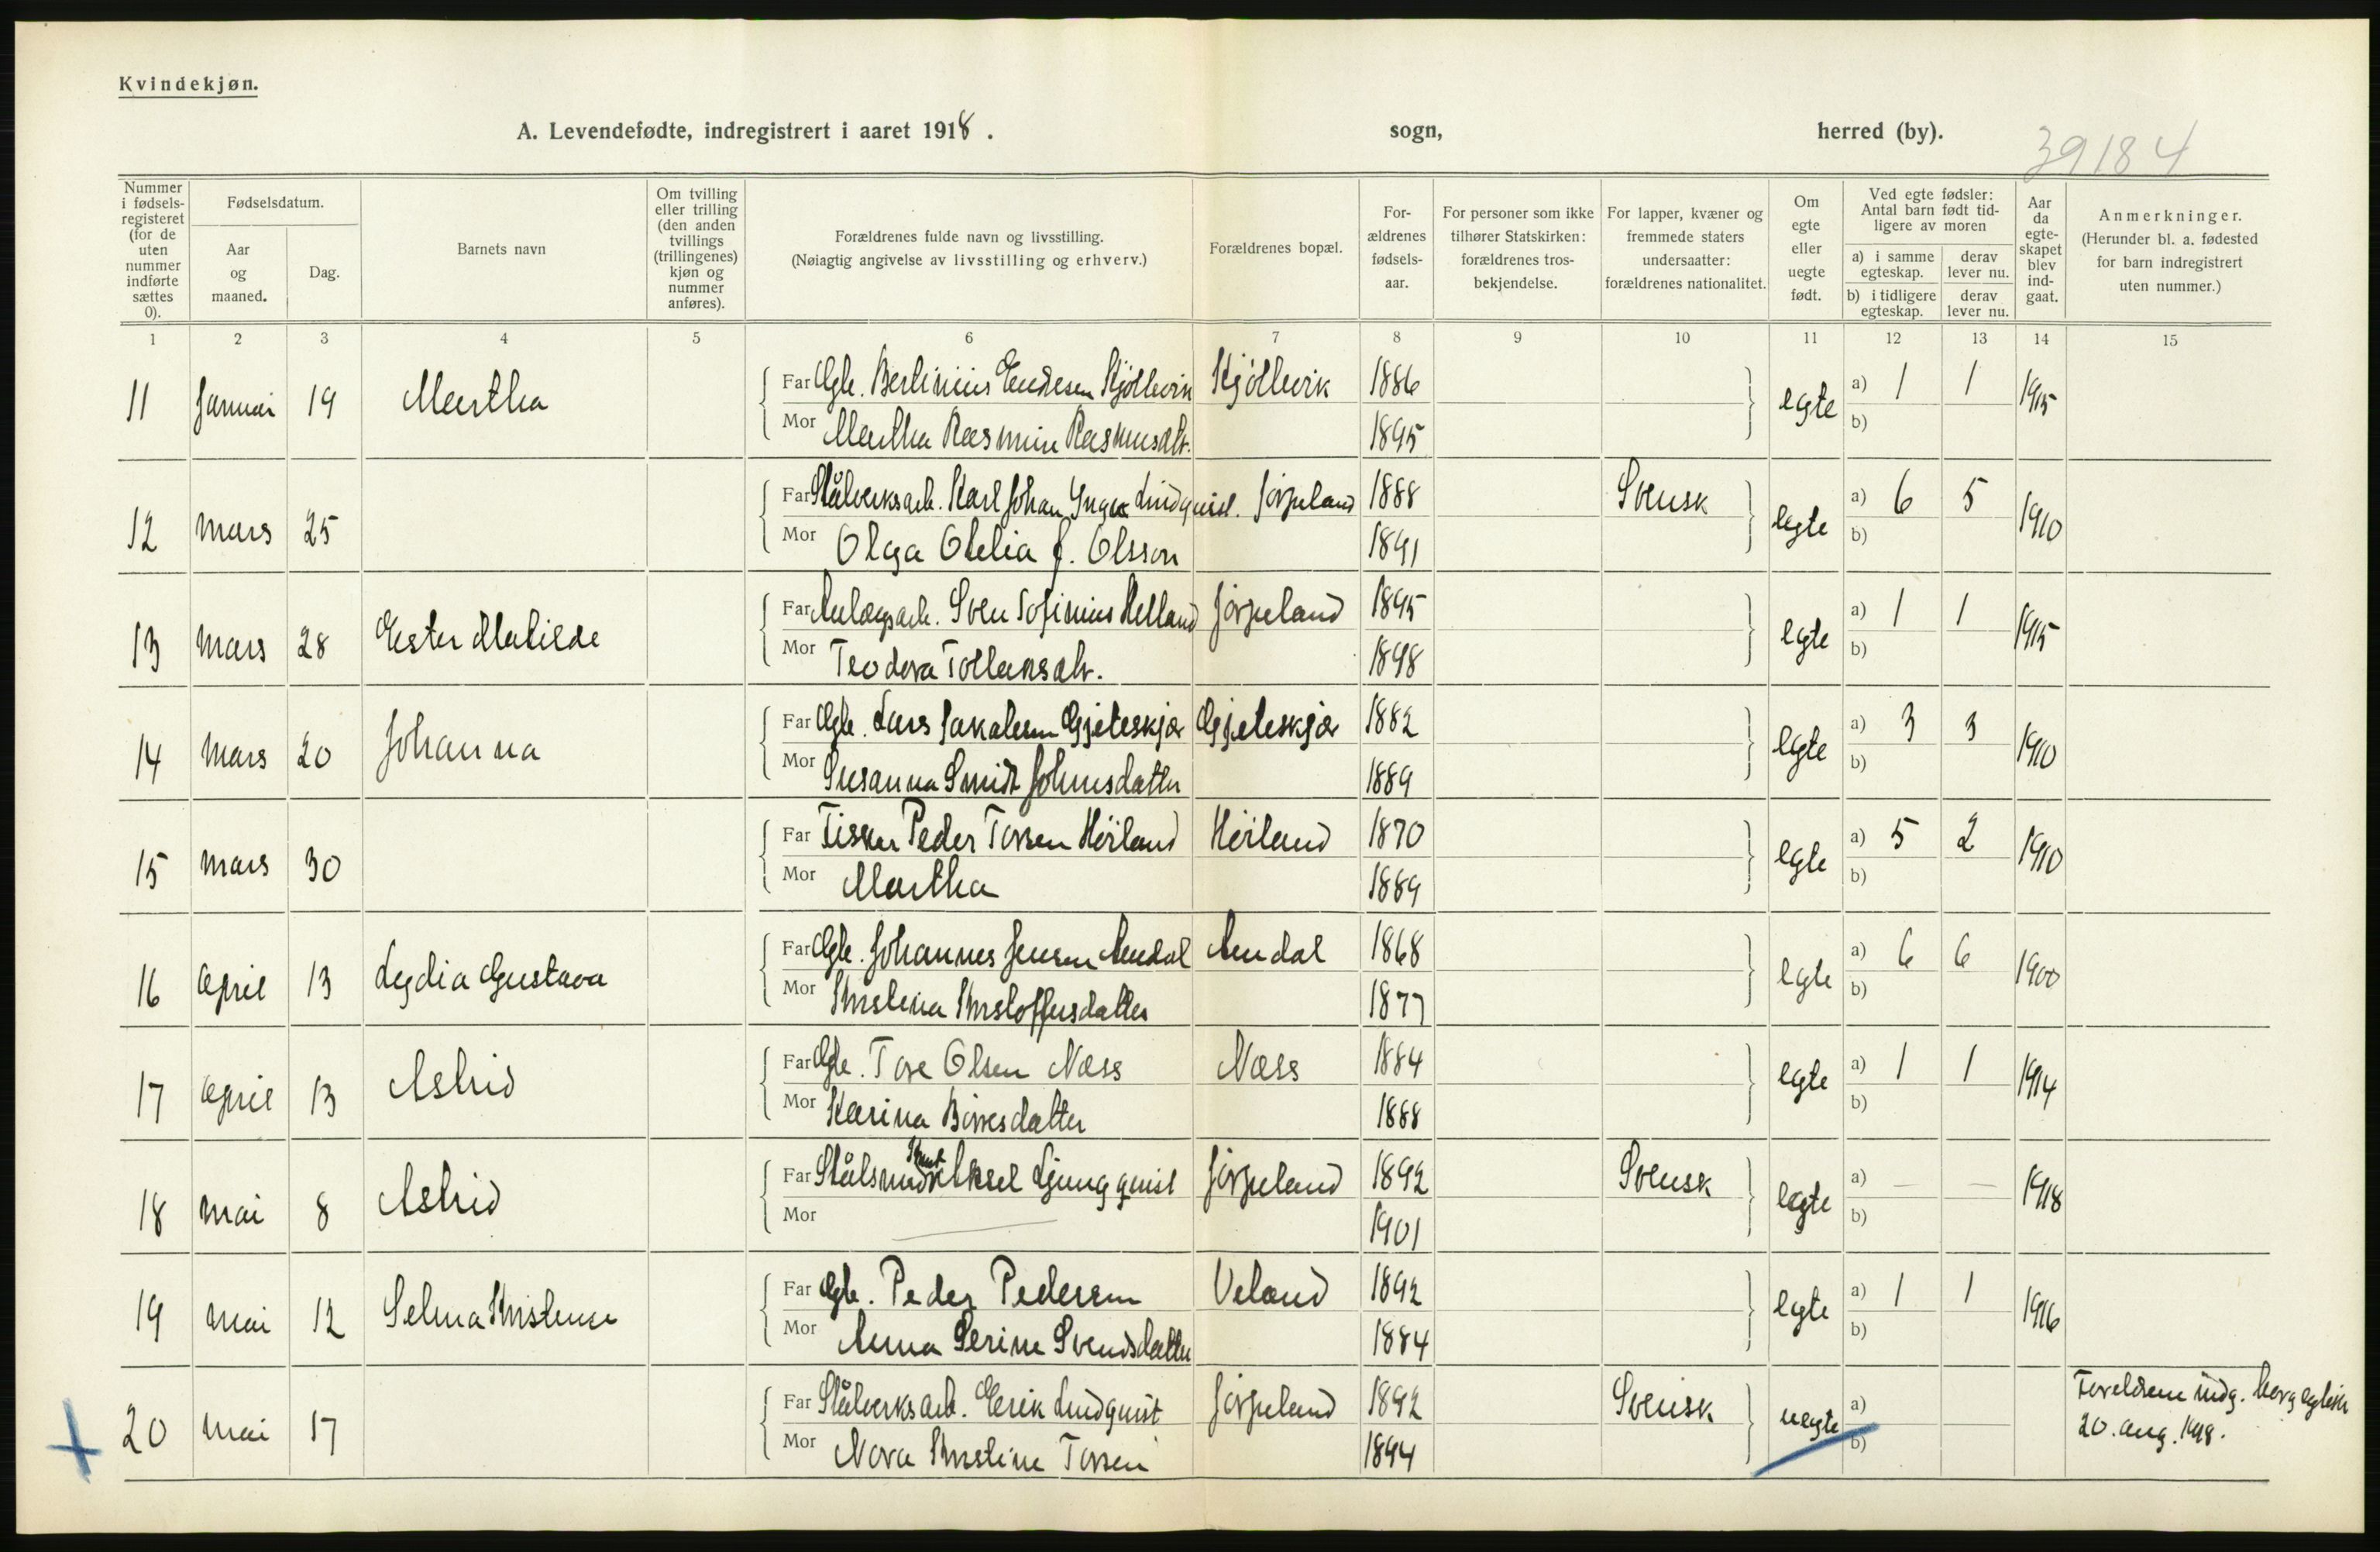 Kvindekjøn.
A. Levendefødte, indregistrert i aaret 1918. sogn, herred (by).
39184
Nummer i fødsels-registeret (for de uten nummer indførte sættes 0).
Fødselsdatum.
Aar og maaned.
Dag.
Barnets navn
Om tvilling eller trilling (den anden tvillings (trillingenes) kjøn og nummer anføres).
Forældrenes fulde navn og livsstilling.
(Nøiagtig angivelse av livsstilling og erhverv.)
Forældrenes bopæl.
For-ældrenes fødsels-aar.
For personer som ikke tilhører Statskirken: forældrenes tros-bekjendelse.
For lapper, kvæner og fremmede staters undersaatter: forældrenes nationalitet.
Om egte eller uegte født.
Ved egte fødsler: Antal barn født tid-ligere av moren
a) i samme egteskap.
derav lever nu.
b) i tidligere egteskap.
derav lever nu.
Aar da egte-skapet blev ind-gaat.
Anmerkninger.
(Herunder bl. a. fødested for barn indregistrert uten nummer.)
1 2 3 4 5 6 7 8 9 10 11 12 13 14 15
11 Januar 19 Martha Far Gbr. Bertinius Endresen Kjöllevik Kjöllevik 1886 egte a) 1 1 1915
Mor Martha Rasmine Rasmusdtr. 1895 b)
12 Mars 25 Far Stålverksarb. Karl Johan Yngve Lindquist. Jörpeland 1888 Svensk egte a) 6 5 1910
Mor Olga Otelia f. Olsson 1891 b)
13 Mars 28 Ester Matilde Far Anlægsarb. Sven Tofinius Helland Jörpeland 1895 egte a) 1 1 1915
Mor Teodora Tollaksdtr. 1898 b)
14 Mars 20 Johanna Far Gbr. Lars Jakobsen Gjeteskjær Gjeteskjær 1882 egte a) 3 3 1910
Mor Susanna Smidt Johnsdatter 1889 b)
15 Mars 30 Far Fisker Peder Torsen Höiland Höiland 1870 egte a) 5 2 1910
Mor Martha 1889 b)
16 April 13 Lydia Gustava Far Gbr. Johannes Jensen Amdal Amdal 1868 egte a) 6 6 1900
Mor Kristina Kristoffersdatter 1877 b)
17 April 13 Astrid Far Gbr. Tore Olsen Næss Næss 1884 egte a) 1 1 1914
Mor Karina Börresdatter 1888 b)
18 Mai 8 Astrid Far Stålsmed Knut Aksel Ljungquist Jörpeland 1892 Svensk egte a) — — 1918
Mor — 1901 b)
19 Mai 12 Selma Kristense Far Gbr. Peder Pedersen Veland 1892 egte a) 1 1 1916
Mor Anna Serine Svendsdatter 1884 b)
20 Mai 17 Far Stålverksarb. Erik Lindquist Jörpeland 1892 Svensk uegte a) Foreldrene indg. borg. egtesk.
Mor Nora Kristine Torsen 1894 b) 20. aug. 1918.